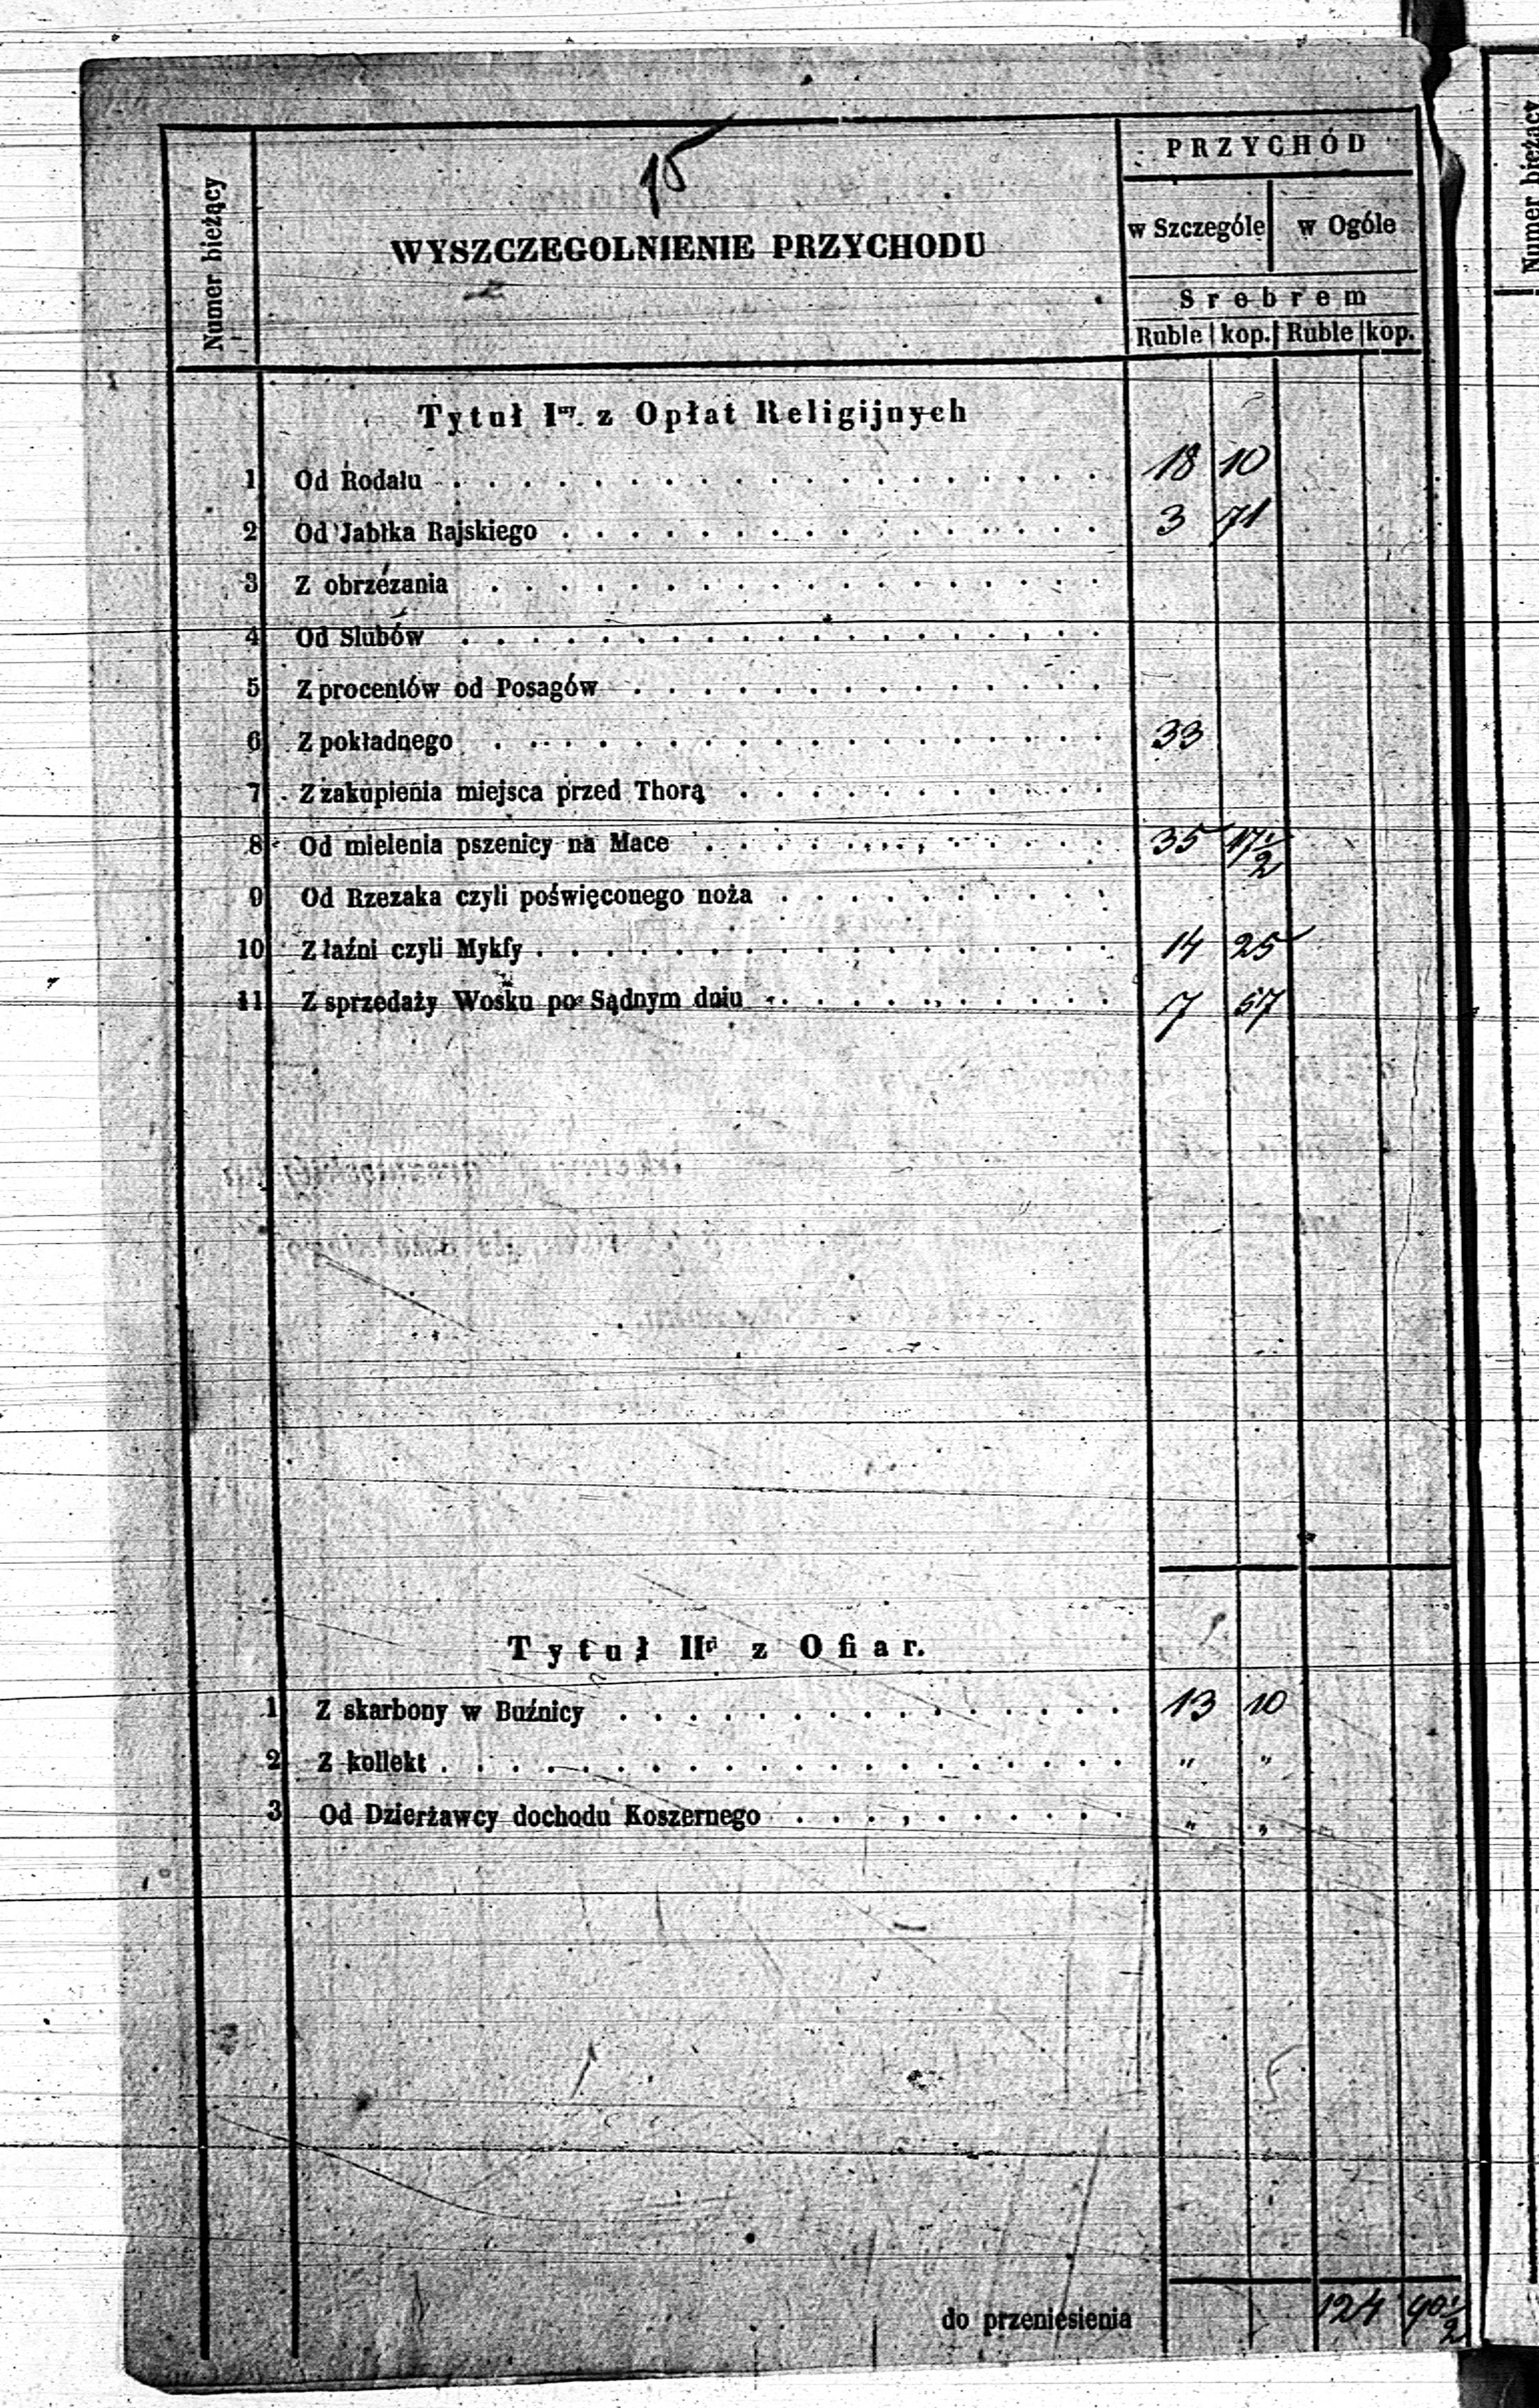 15
Numer bieżący
WYSZCZEGOLNIENIE PRZYCHODU
PRZYCHÓD
w Szczególe w Ogóle
Srebrem
Ruble kop. Ruble kop.
Tytuł Iszy. z Opłat Religijnych
1 Od Rodału 18 10
2 Od Jabłka Rajskiego 3 71
3 Z obrzézania
4 Od Slubów
5 Z procentów od Posagów
6 Z pokładnego 33
7 Z zakupienia miejsca przed Thorą
8 Od mielenia pszenicy na Mace 35 17½
9 Od Rzezaka czyli poświęconego noża
10 Z łaźni czyli Mykfy 14 25
11 Z sprzedaży Wosku po Sądnym dniu 7 57
Tytuł IIgi z Ofiar.
1 Z skarbony w Buźnicy 13 10
2 Z kollekt " "
3 Od Dzierżawcy dochodu Koszernego " "
do przeniesienia 124 90½
Numer bieżący